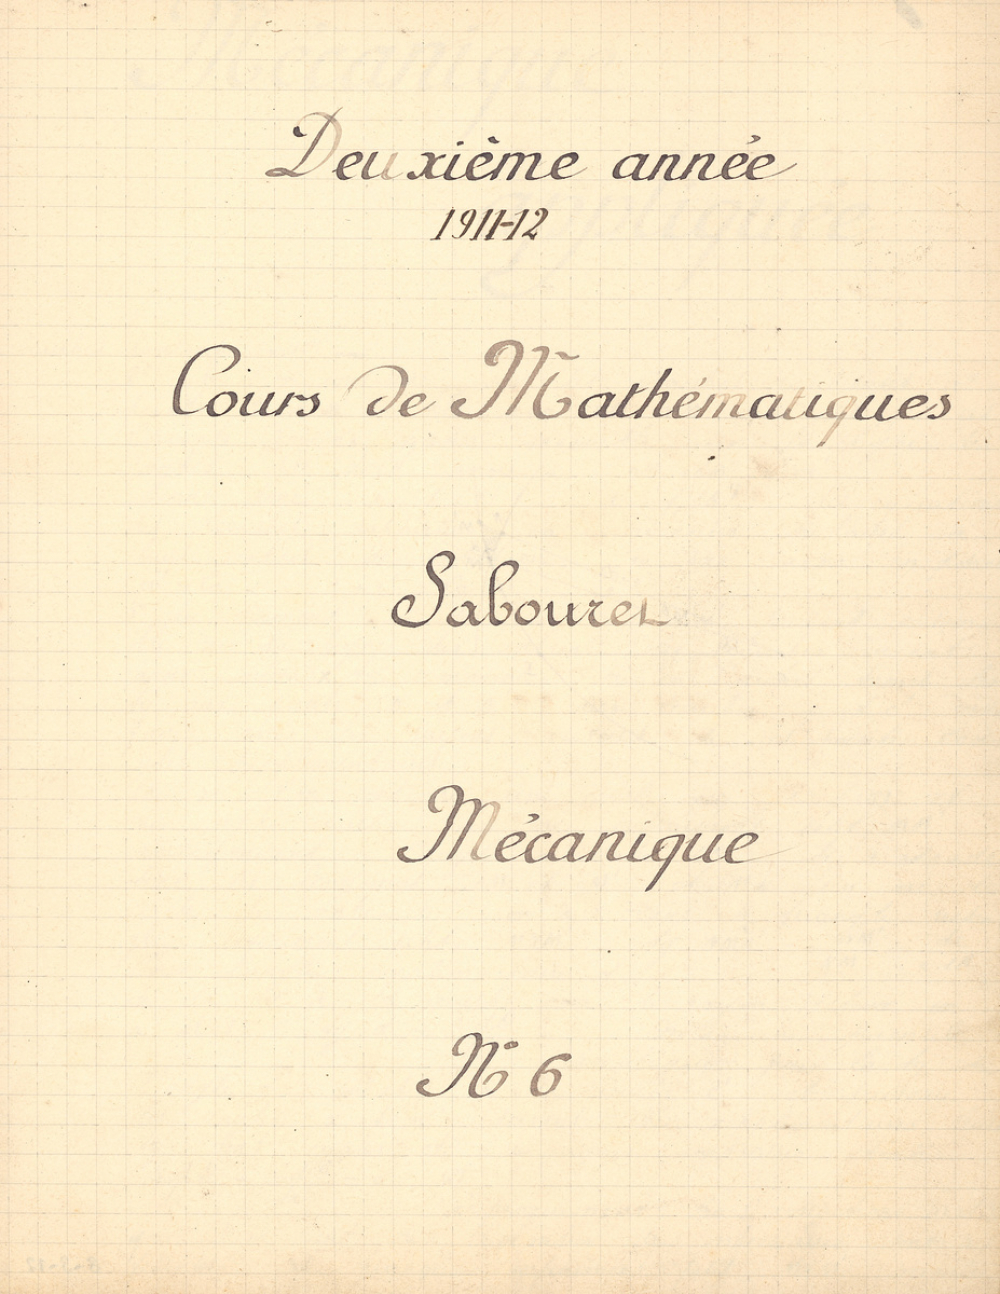 Deuxième année
1911-12
Cours de Mathématiques
Sabouret
Mécanique
N° 6